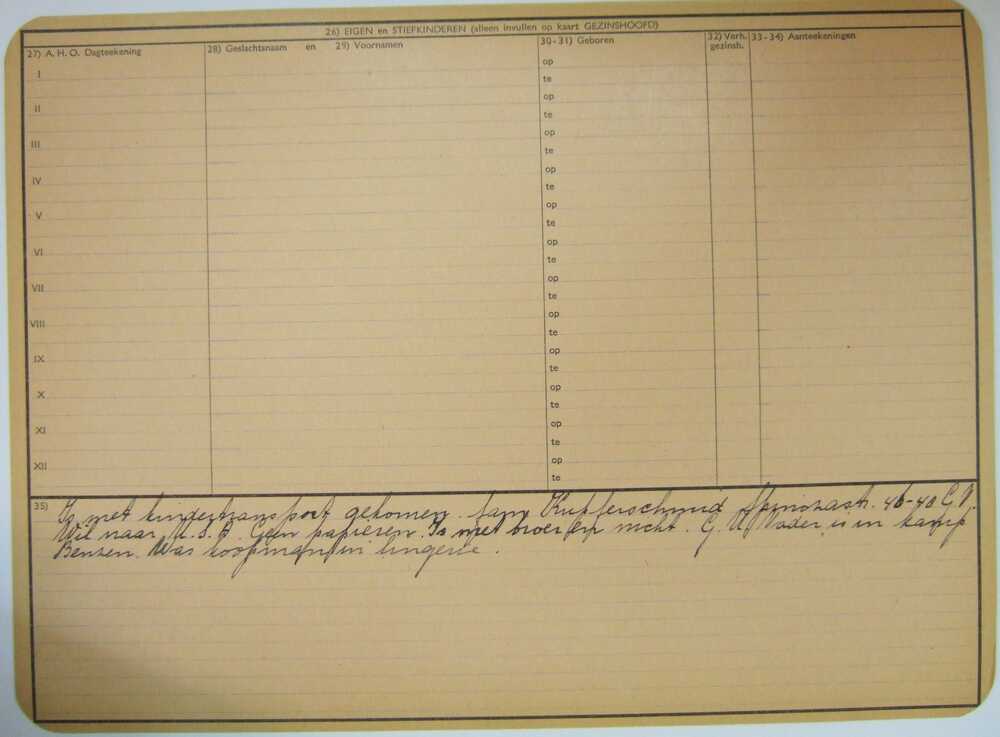 26) EIGEN en STIEFKINDEREN (alleen invullen op kaart GEZINSHOOFD)
27) A. H. O. Dagteekening 28) Geslachtsnaam en 29) Voornamen 30-31) Geboren 32) Verh. gezinsh. 33-34) Aanteekeningen
I op
te
II op
te
III op
te
IV op
te
V op
te
VI op
te
VII op
te
VIII op
te
IX op
te
X op
te
XI op
te
XII op
te
35) Is met kindertransport gekomen. fam Kupferschmid 46-48
Wil naar U.S.A. Geen papieren. Is met broer en nicht. G. Vader is in kamp
Was koopman in lingerie.